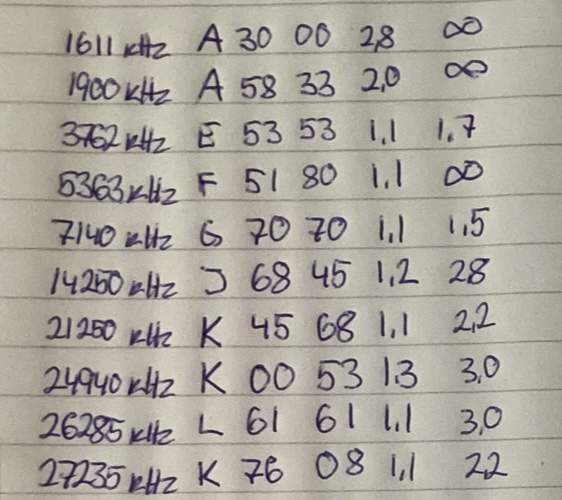 1611 kHz A 30 00 2,8 ∞
1900 kHz A 58 33 2,0 ∞
3762 kHz E 53 53 1,1 1,7
5363 kHz F 51 80 1,1 ∞
7140 kHz G 70 70 1,1 1,5
14250 kHz J 68 45 1,2 28
21250 kHz K 45 68 1,1 2,2
24940 kHz K 00 53 1.3 3,0
26285 kHz L 61 61 1,1 3,0
27235 kHz K 76 08 1,1 22